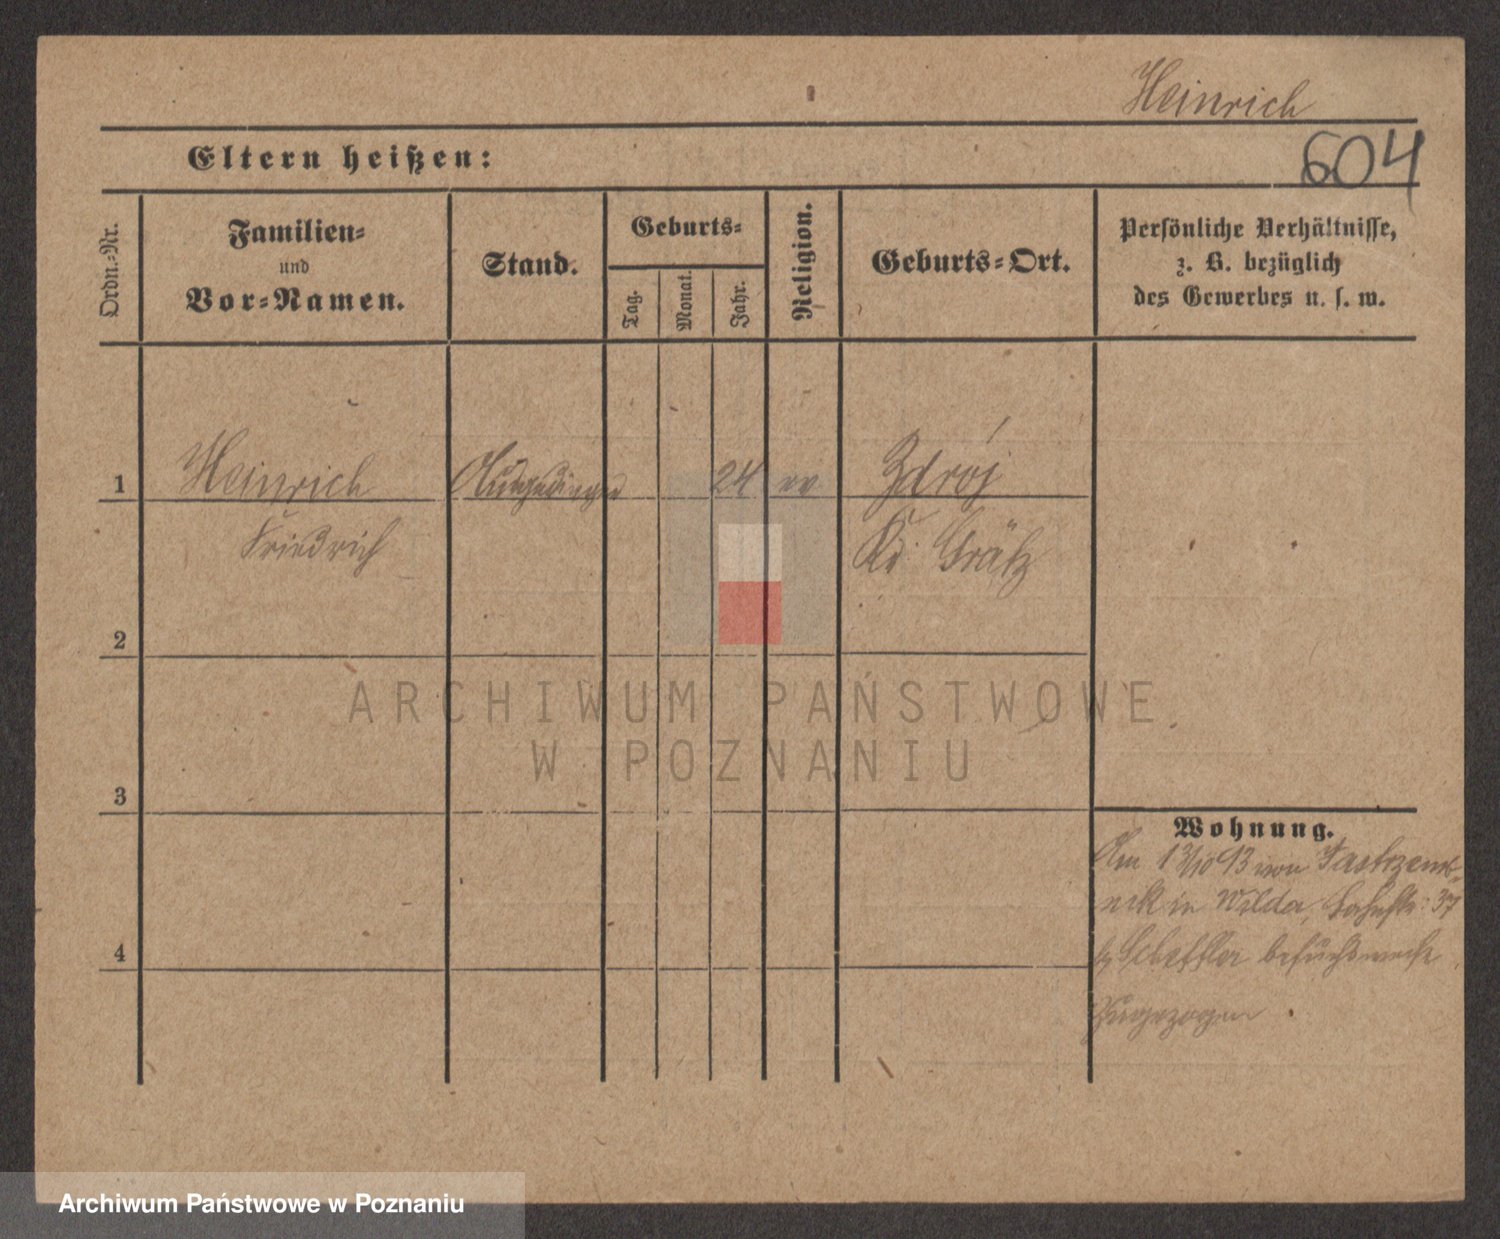 Heinrich
604
Eltern heißen:
Ordn.-Nr.
Familien-
und
Vor-Namen.
Stand.
Geburts-
Tag.
Monat.
Jahr.
Religion.
Geburts-Ort.
Persönliche Verhältnisse,
z. B. bezüglich
des Gewerbes u. s. w.
1
Heinrich
Ausgedinger
24
ev
Zdrój
Friedrich
Kr. Grätz
2
3
4
Wohnung.
Am 12/10 93 von
in Wilda, 37
Scheffler besuchsweise
zugezogen.
ARCHIWUM PAŃSTWOWE
W POZNANIU
Archiwum Państwowe w Poznaniu